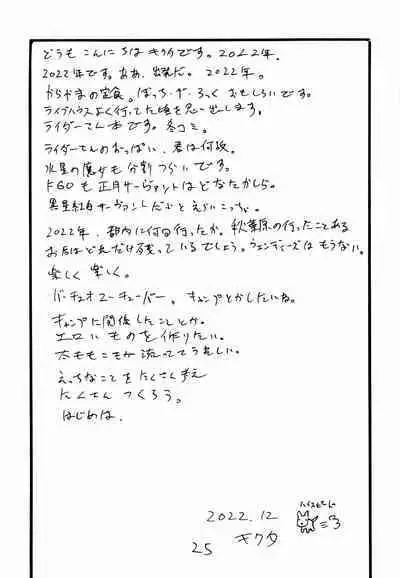 どうも こんにちは キクタです。2022年。
2022年です。ああ、出来だ。2022年。
からやまの定食。ぼっち・ざ・ろっく おもしろいです。
ライブハウスよく行ってた頃を思い出します。
ライダーさん本です。冬コミ。
ライダーさんのおっぱい、君は何派。
水星の魔女も分割つらいです。
FGOも正月サーヴァントはどなたかしら。
2022年、都内に何回行ったか。秋葉原の行ったことある
お店はどれだけ残っているでしょう。ウェンディーズはもうない。
楽しく 楽しく。
バーチュオユーチューバー。キャンプとかしたいね。
キャンプに関係したこととか。
エロいものを作りたい。
太ももこきが流っててうれしい。
えっちなことをたくさん考え
たくさん つくろう。
はじめは、
2022.12
キクタ
ハイスピード
25